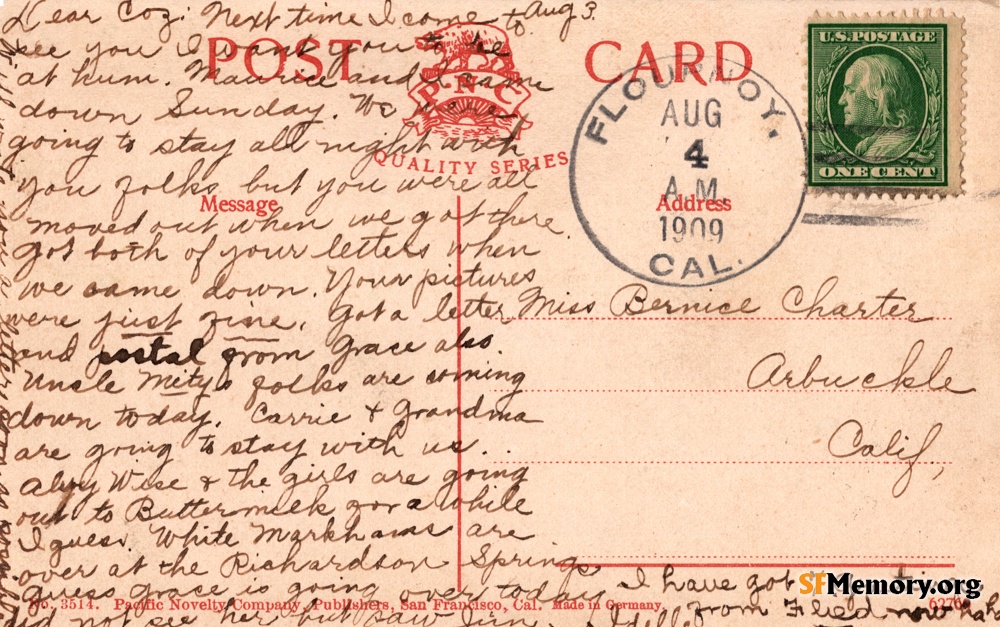 Dear Coz: Next time I come to Aug 3.
see you I want you to be
at hum. Maurice and I came
down Sunday. We were
going to stay all night with
you folks but you were all
moved out when we got there.
got both of your letters when
we came down. Your pictures
were just fine. Got a letter
and postal from Grace also.
Uncle Mity's folks are coming
down today. Carrie & Grandma
are going to stay with us.
Wise & the girls are going
out to Buttermilk for a while
I guess. White Markhams are
over at the Richardson Springs
guess Grace is going over today.
did not see her but saw
I have got
from now
POST CARD
PNC
QUALITY SERIES
Message
Address
FLOURNOY.
AUG
4
A.M.
1909
CAL.
U.S. POSTAGE
ONE CENT
Miss Bernice Charter
Arbuckle
Calif,
No. 3514. Pacific Novelty Company, Publishers, San Francisco, Cal. Made in Germany.
SFMemory.org